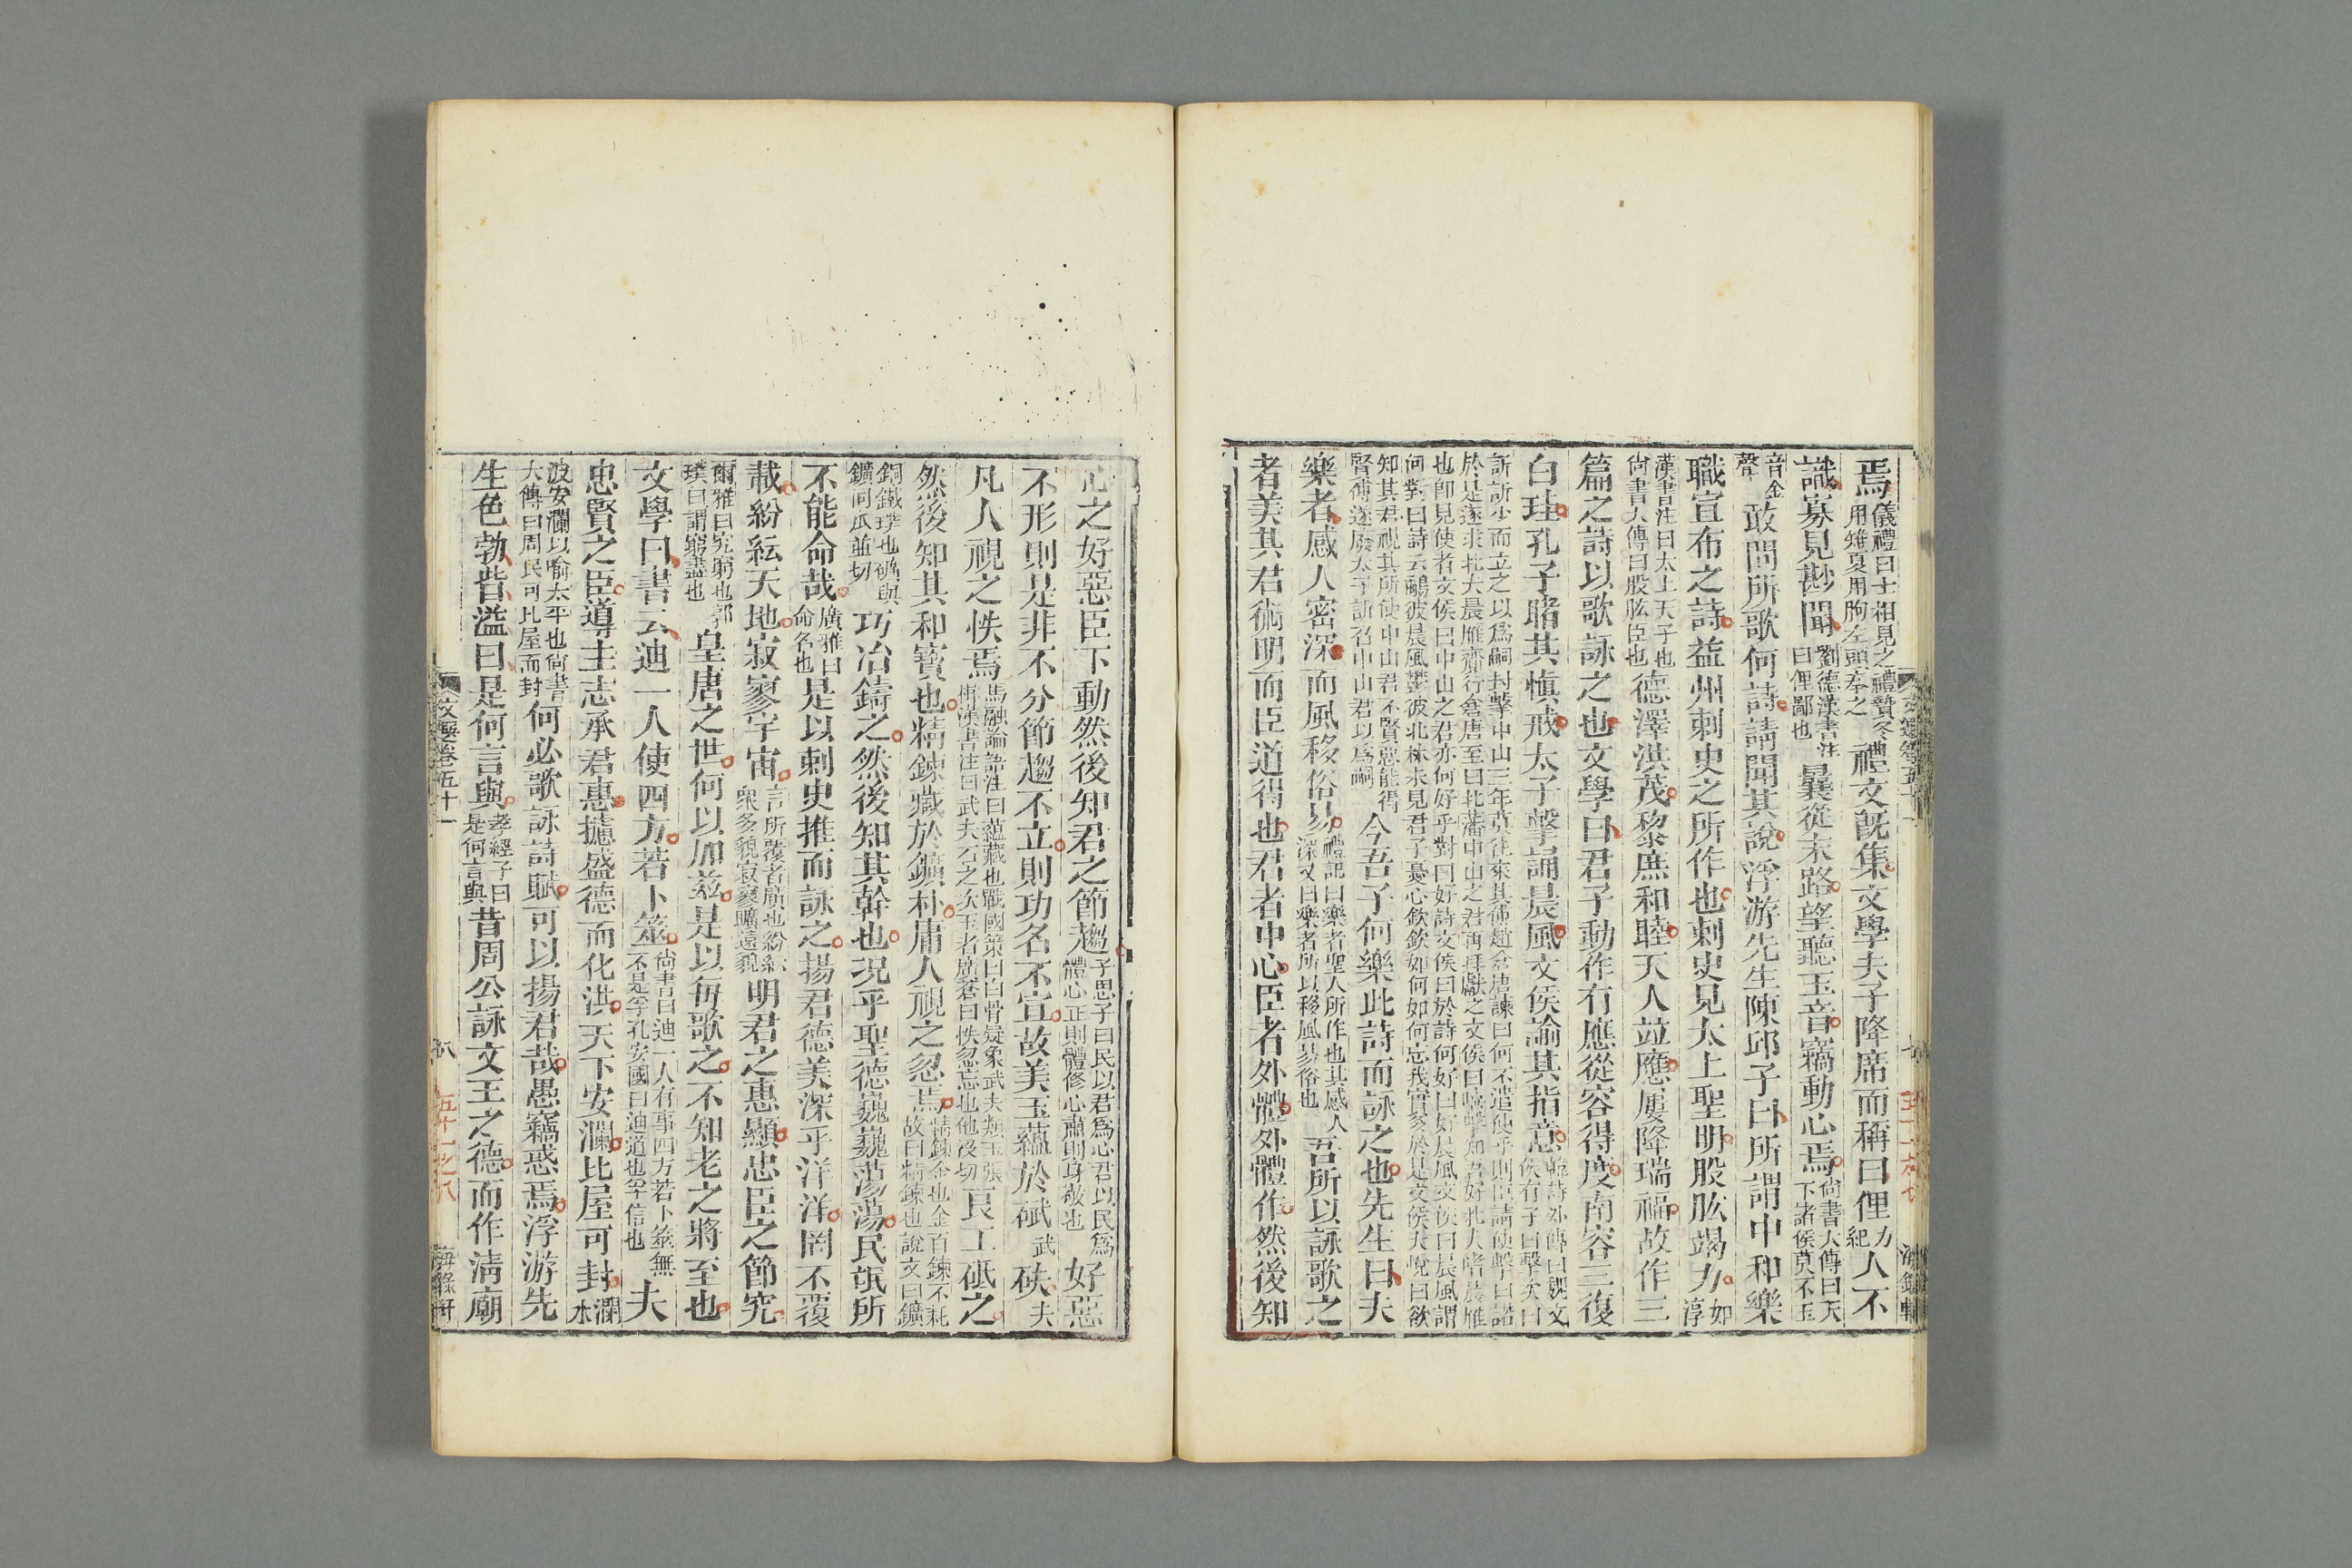 焉儀禮曰士相見之禮贄冬用雉夏用腒左頭奉之禮文旣集文學夫子降席而稱曰俚力紀人不
識寡見尠聞劉德漢書注曰俚鄙也曩從末路望聽玉音竊動心焉尚書大傳曰天下諸侯莫不玉
音金聲敢問所歌何詩請聞其說浮游先生陳邱子曰所謂中和樂
職宣布之詩益州刺史之所作也刺史見太上聖明股肱竭力如淳
漢書注曰太上天子也尚書大傳曰股肱臣也德澤洪茂黎庶和睦天人竝應屢降瑞福故作三
篇之詩以歌詠之也文學曰君子動作有應從容得度南容三復
白珪孔子睹其愼戒太子擊誦晨風文侯諭其指意韓詩外傳曰魏文侯有子曰擊次曰
訢訢少而立之以爲嗣封擊中山三年莫往來其傅趙倉唐諫曰何不遣使乎則臣請使擊曰諾
於是遂求北犬晨雁齎行倉唐至曰北蕃中山之君再拜獻之文侯曰嘻擊知吾好北犬嗜晨雁
也卽見使者文侯曰中山之君亦何好乎對曰好詩文侯曰於詩何好曰好晨風文侯曰晨風謂
何對曰詩云鴥彼晨風鬱彼北林未見君子憂心欽欽如何如何忘我實多於是文侯大悅曰欲
知其君視其所使中山君不賢惡能得賢傅遂廢太子訢召中山君以爲嗣今吾子何樂此詩而詠之也先生曰夫
樂者感人密深而風移俗易禮記曰樂者聖人所作也其感人深又曰樂者所以移風易俗也吾所以詠歌之
者美其君術明而臣道得也君者中心臣者外體外體作然後知
心之好惡臣下動然後知君之節趨子思子曰民以君爲心君以民爲體心正則體修心肅則身敬也好惡
不形則是非不分節趨不立則功名不宣故美玉蘊於碔武砆夫
凡人視之怢焉馬融論語注曰蘊藏也戰國策曰白骨疑象武夫類玉張揖漢書注曰武夫石之次玉者廣蒼曰怢忽忘也他沒切良工砥之
然後知其和寶也精鍊藏於鑛朴庸人視之忽焉精鍊金也金百鍊不耗故曰精鍊也說文曰鑛
銅鐵璞也礦與鑛同瓜並切巧冶鑄之然後知其幹也况乎聖德巍巍蕩蕩民氓所
不能命哉廣雅曰命名也是以刺史推而詠之揚君德美深乎洋洋罔不覆
載紛紜天地寂寥宇宙言所覆者廣也紛紜衆多貌寂寥曠遠貌明君之惠顯忠臣之節究
爾雅曰究窮也郭璞曰謂窮盡也皇唐之世何以加兹是以每歌之不知老之將至也
文學曰書云迪一人使四方若卜筮尚書曰迪一人有事四方若卜筮無不是孚孔安國曰迪道也孚信也夫
忠賢之臣導主志承君惠攄盛德而化洪天下安瀾比屋可封瀾水
波安瀾以喻太平也尚書大傳曰周民可比屋而封何必歌詠詩賦可以揚君哉愚竊惑焉浮游先
生色勃眥溢曰是何言與孝經子曰是何言與昔周公詠文王之德而作清廟
文選卷五十一
八
五十一之八
海錄軒